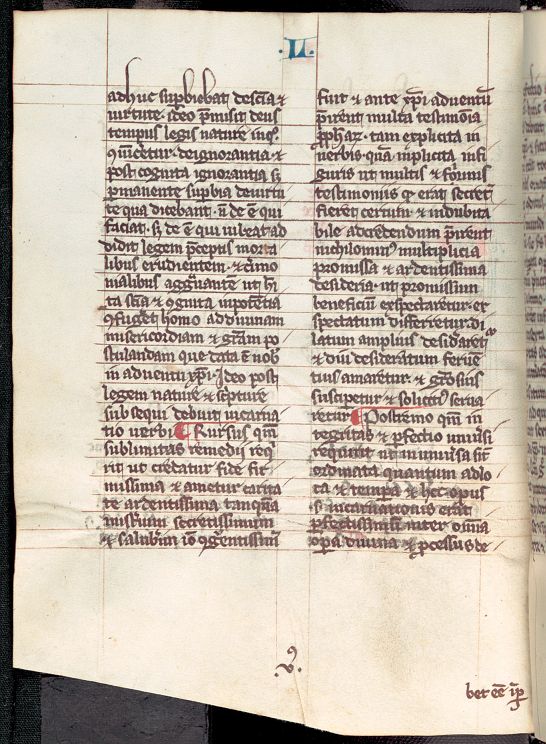 .IJ.
adhuc suꝑbiebat de sci̅a ⁊
uirtute. ideo p̅misit deus
tempus legis nature in qͦ
ꝯuincet̉ur de ignorantia ⁊
post cognita ignorantia sꝫ
ꝑmanente suꝑbia de uirtu
te qua dicebant. n̅ de e̅ qui
faciat. sꝫ de e̅ qui iubeat ad
didit legem p̅ceptis mora
libus erudientem. ⁊ c̉imo
nialibus agg̉uante ut h̅i
ta sci̅a ⁊ ꝯgnita inpotentia
ꝯfuget̉ homo ad diuinam
misericordiam ⁊ gr̅am po
stulandam que data e̅ nob̅
in aduentu xp̅i. Ideo post
legem nature ⁊ sc̉pture
subsequi debuit incarna
tio uerbi ¶ Rursus qm̅
sublimitas remedii req̉
rit ut credatur fide fir
missima ⁊ ametur carita
te ardentissima tanqua̅
mist̉ium secretissimum
⁊ salub̉rimu̅ io̅ ꝯg̉uentissimu̅
fuit ⁊ ante xp̅i aduentu̅
p̅irent multa testimo̅ia
ꝓphar̅. tam explicita in
uerbis qua̅ inplicita in fi
guris ut multis ⁊ firmis
testimoniis qͩ erat secretu̅
fieret certum ⁊ indubita
bile ad credendum p̅irent
nichilomin̉ multiplicia
promissa ⁊ ardentissima
desideria. ut promissum
beneficiu̅ exspectaretur. ex
spectatum differretur. di
latum amplius desid̉aretur
⁊ diu desideratum feruen̅
tius amaretur. ⁊ gr̅osius
susciperetur ⁊ sollicitiꝰ serua
retur ¶ Postremo qm̅ in
tegritas ⁊ ꝑfectio uniuersi
req̉runt ut uniuersa sint
ordinata quantum ad lo
ca ⁊ tempa̅ ⁊ hec opus
.s. incarnationis erat
ꝑfectissimu̅ inter om̅ia
oꝑa diuina ⁊ ꝓcessus de
.v.
bet ee̅ ip̅